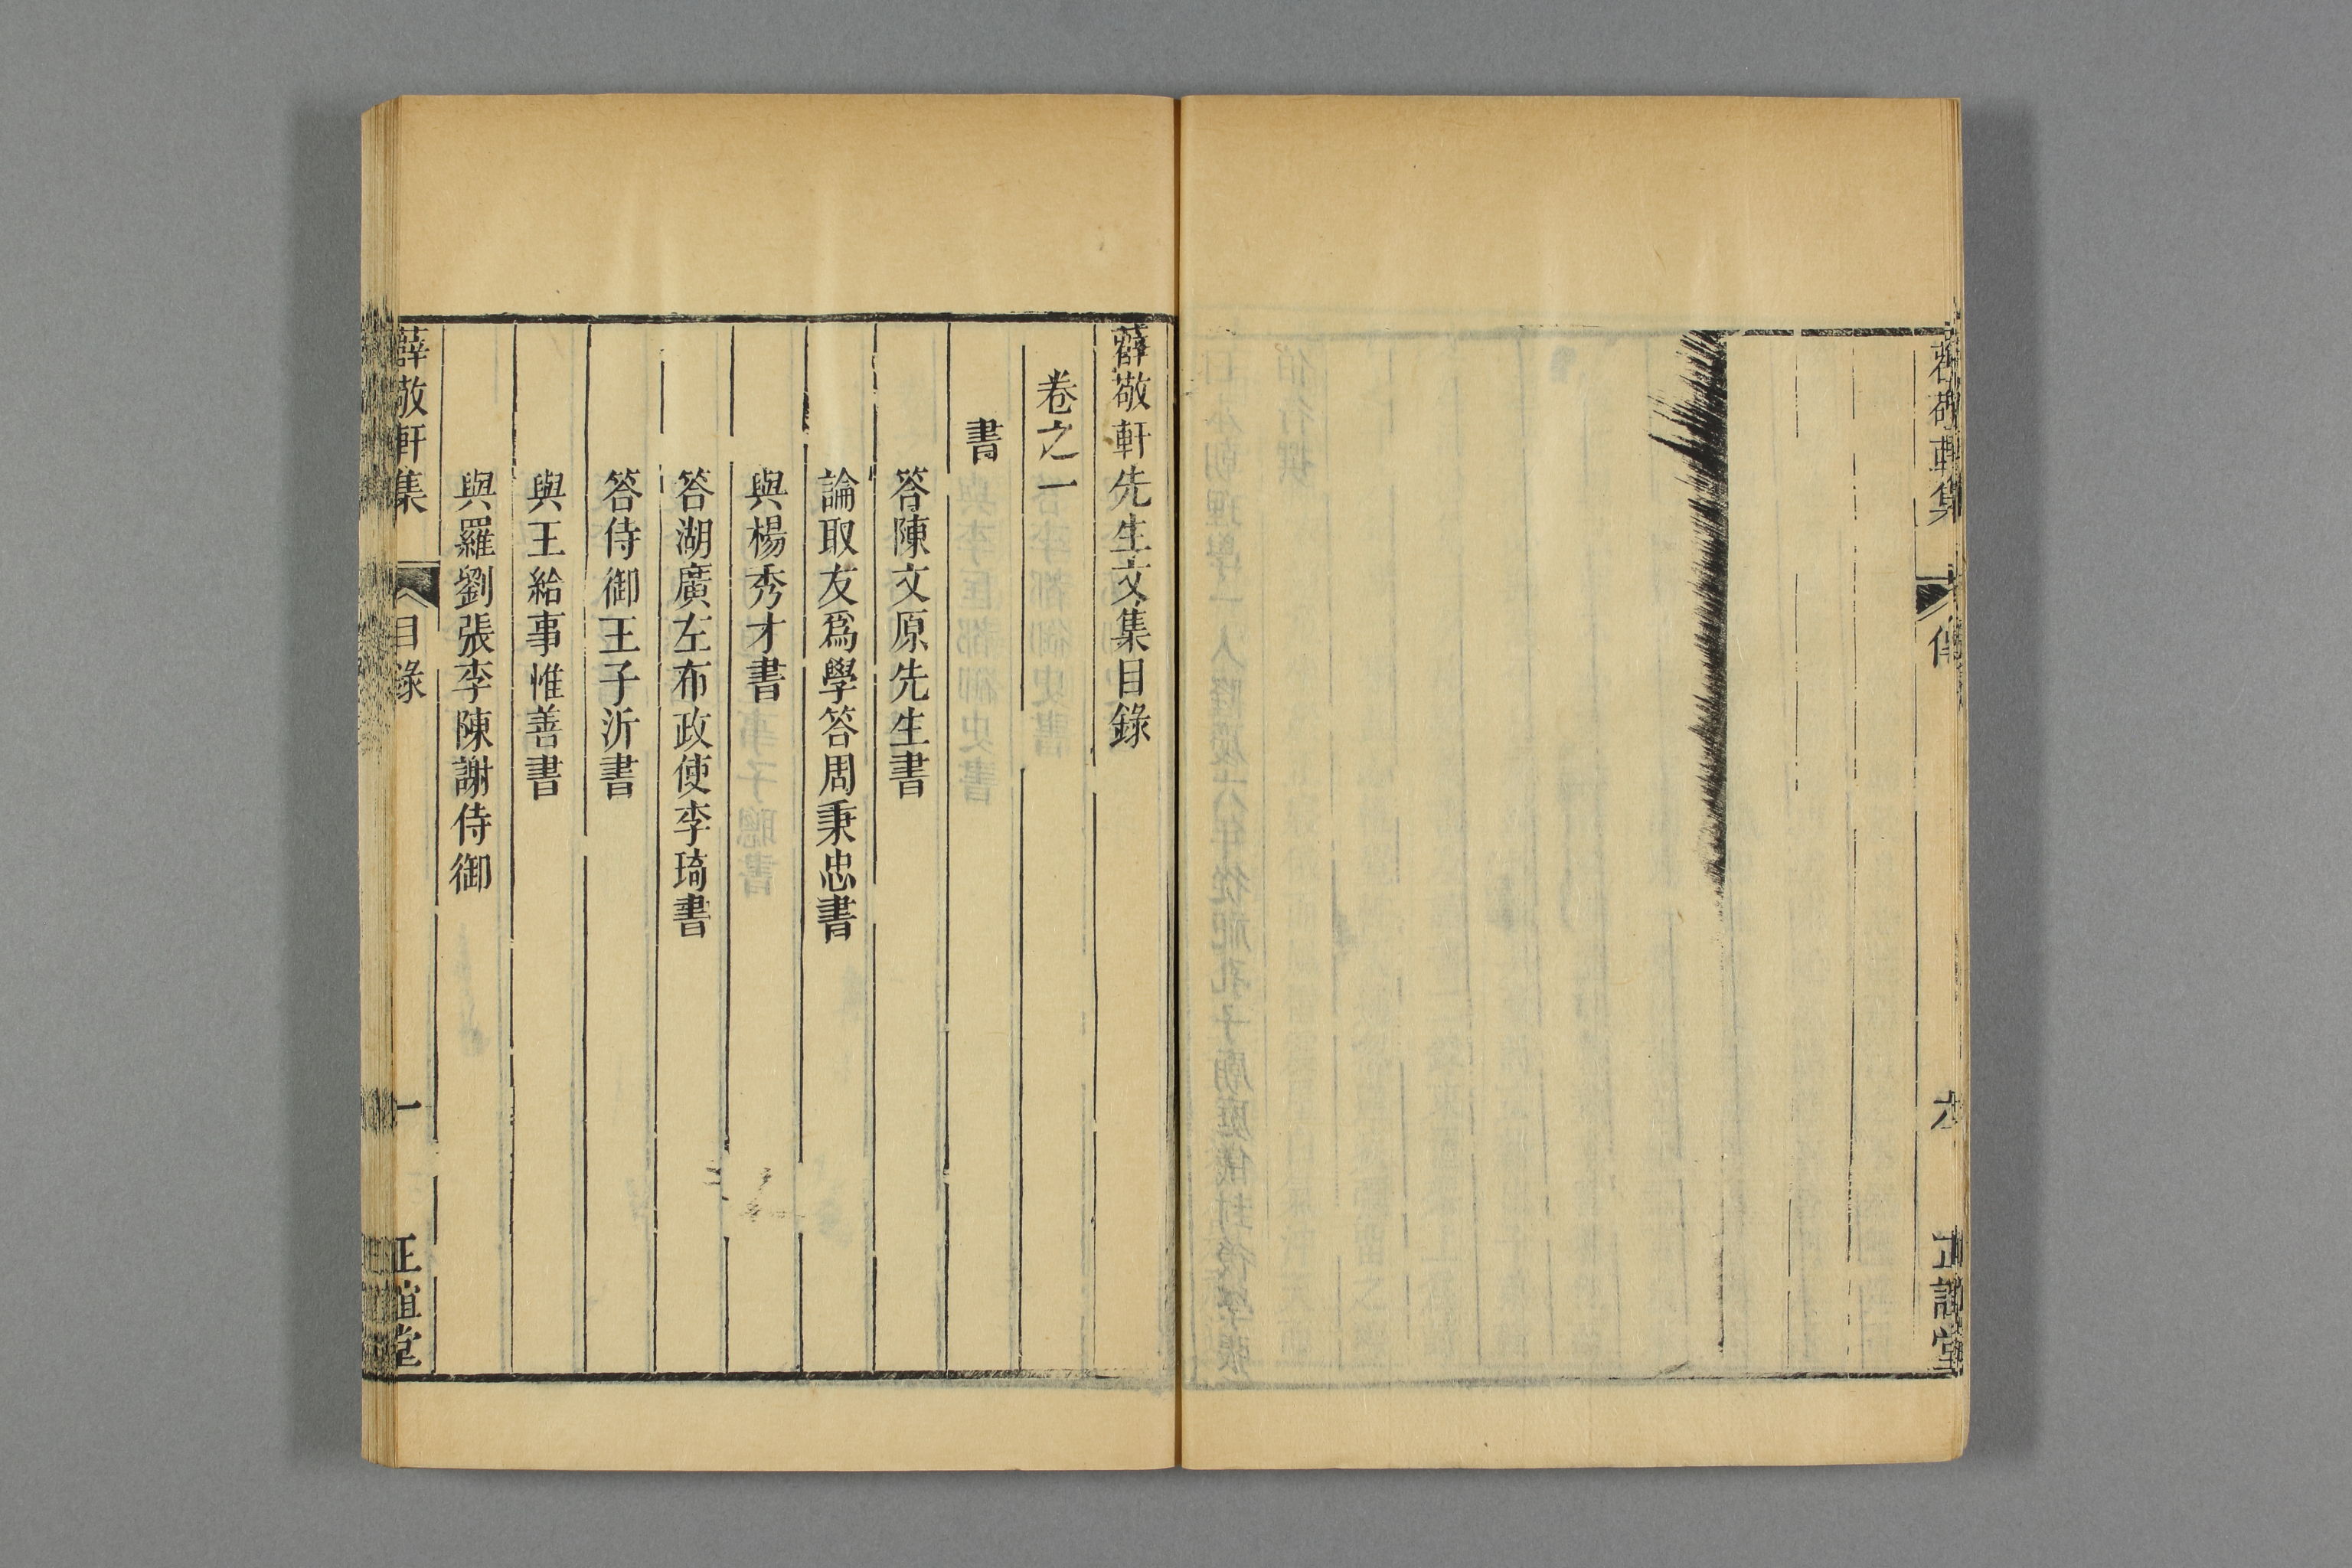 薛敬軒先生文集目錄
卷之一
書
答陳文原先生書
論取友爲學答周秉忠書
與楊秀才書
答湖廣左布政使李琦書
答侍御王子沂書
與王給事惟善書
與羅劉張李陳謝侍御
薛敬軒集 目錄 一 正誼堂